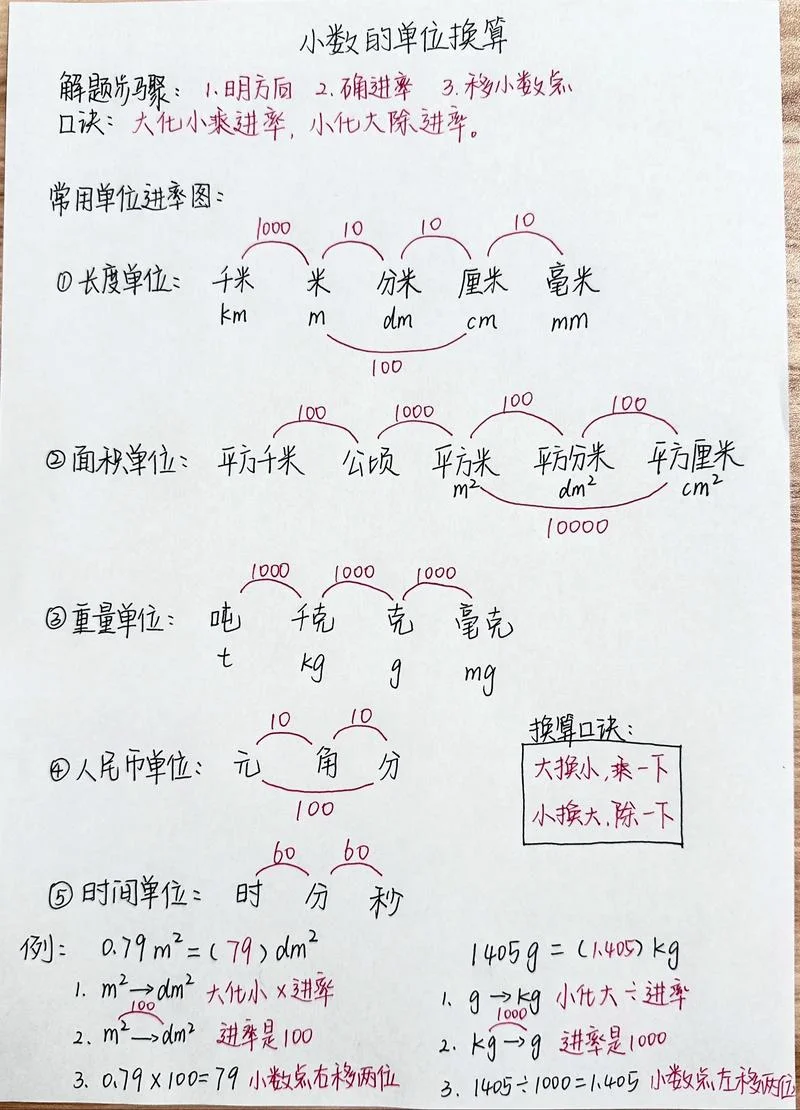 小数的单位换算
解题步骤: 1.明方向 2.确进率 3.移小数点
口诀: 大化小乘进率, 小化大除进率。
常用单位进率图:
1000 10 10 10
①长度单位: 千米 米 分米 厘米 毫米
km m dm cm mm
100
100 1000 100 100
②面积单位: 平方千米 公顷 平方米 平方分米 平方厘米
m² dm² cm²
10000
1000 1000 1000
③重量单位: 吨 千克 克 毫克
t kg g mg
10 10
④人民币单位: 元 角 分
100
换算口诀:
大换小,乘一下
小换大,除一下
60 60
⑤时间单位: 时 分 秒
例: 0.79m²=(79)dm²
1. m²→dm² 大化小×进率
100
2. m²→dm² 进率是100
3. 0.79×100=79 小数点右移两位
1405g=(1.405)kg
1. g→kg 小化大÷进率
1000
2. kg→g 进率是1000
3. 1405÷1000=1.405 小数点左移两位